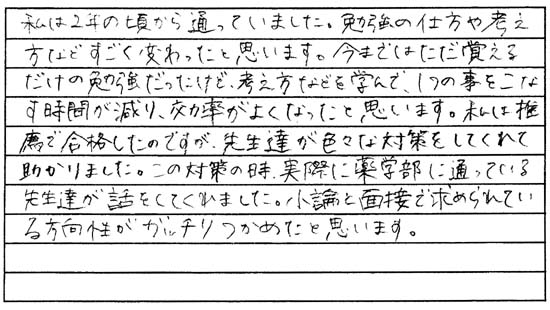 私は2年の頃から通っていました。勉強の仕方や考え
方などすごく変わったと思います。今まではただ覚える
だけの勉強だったけど、考え方などを学んで、1つの事をこな
す時間が減り、効率がよくなったと思います。私は推
薦で合格したのですが、先生達が色々な対策をしてくれて
助かりました。この対策の時、実際に薬学部に通っている
先生達が話をしてくれました。小論と面接で求められてい
る方向性がガッチリつかめたと思います。